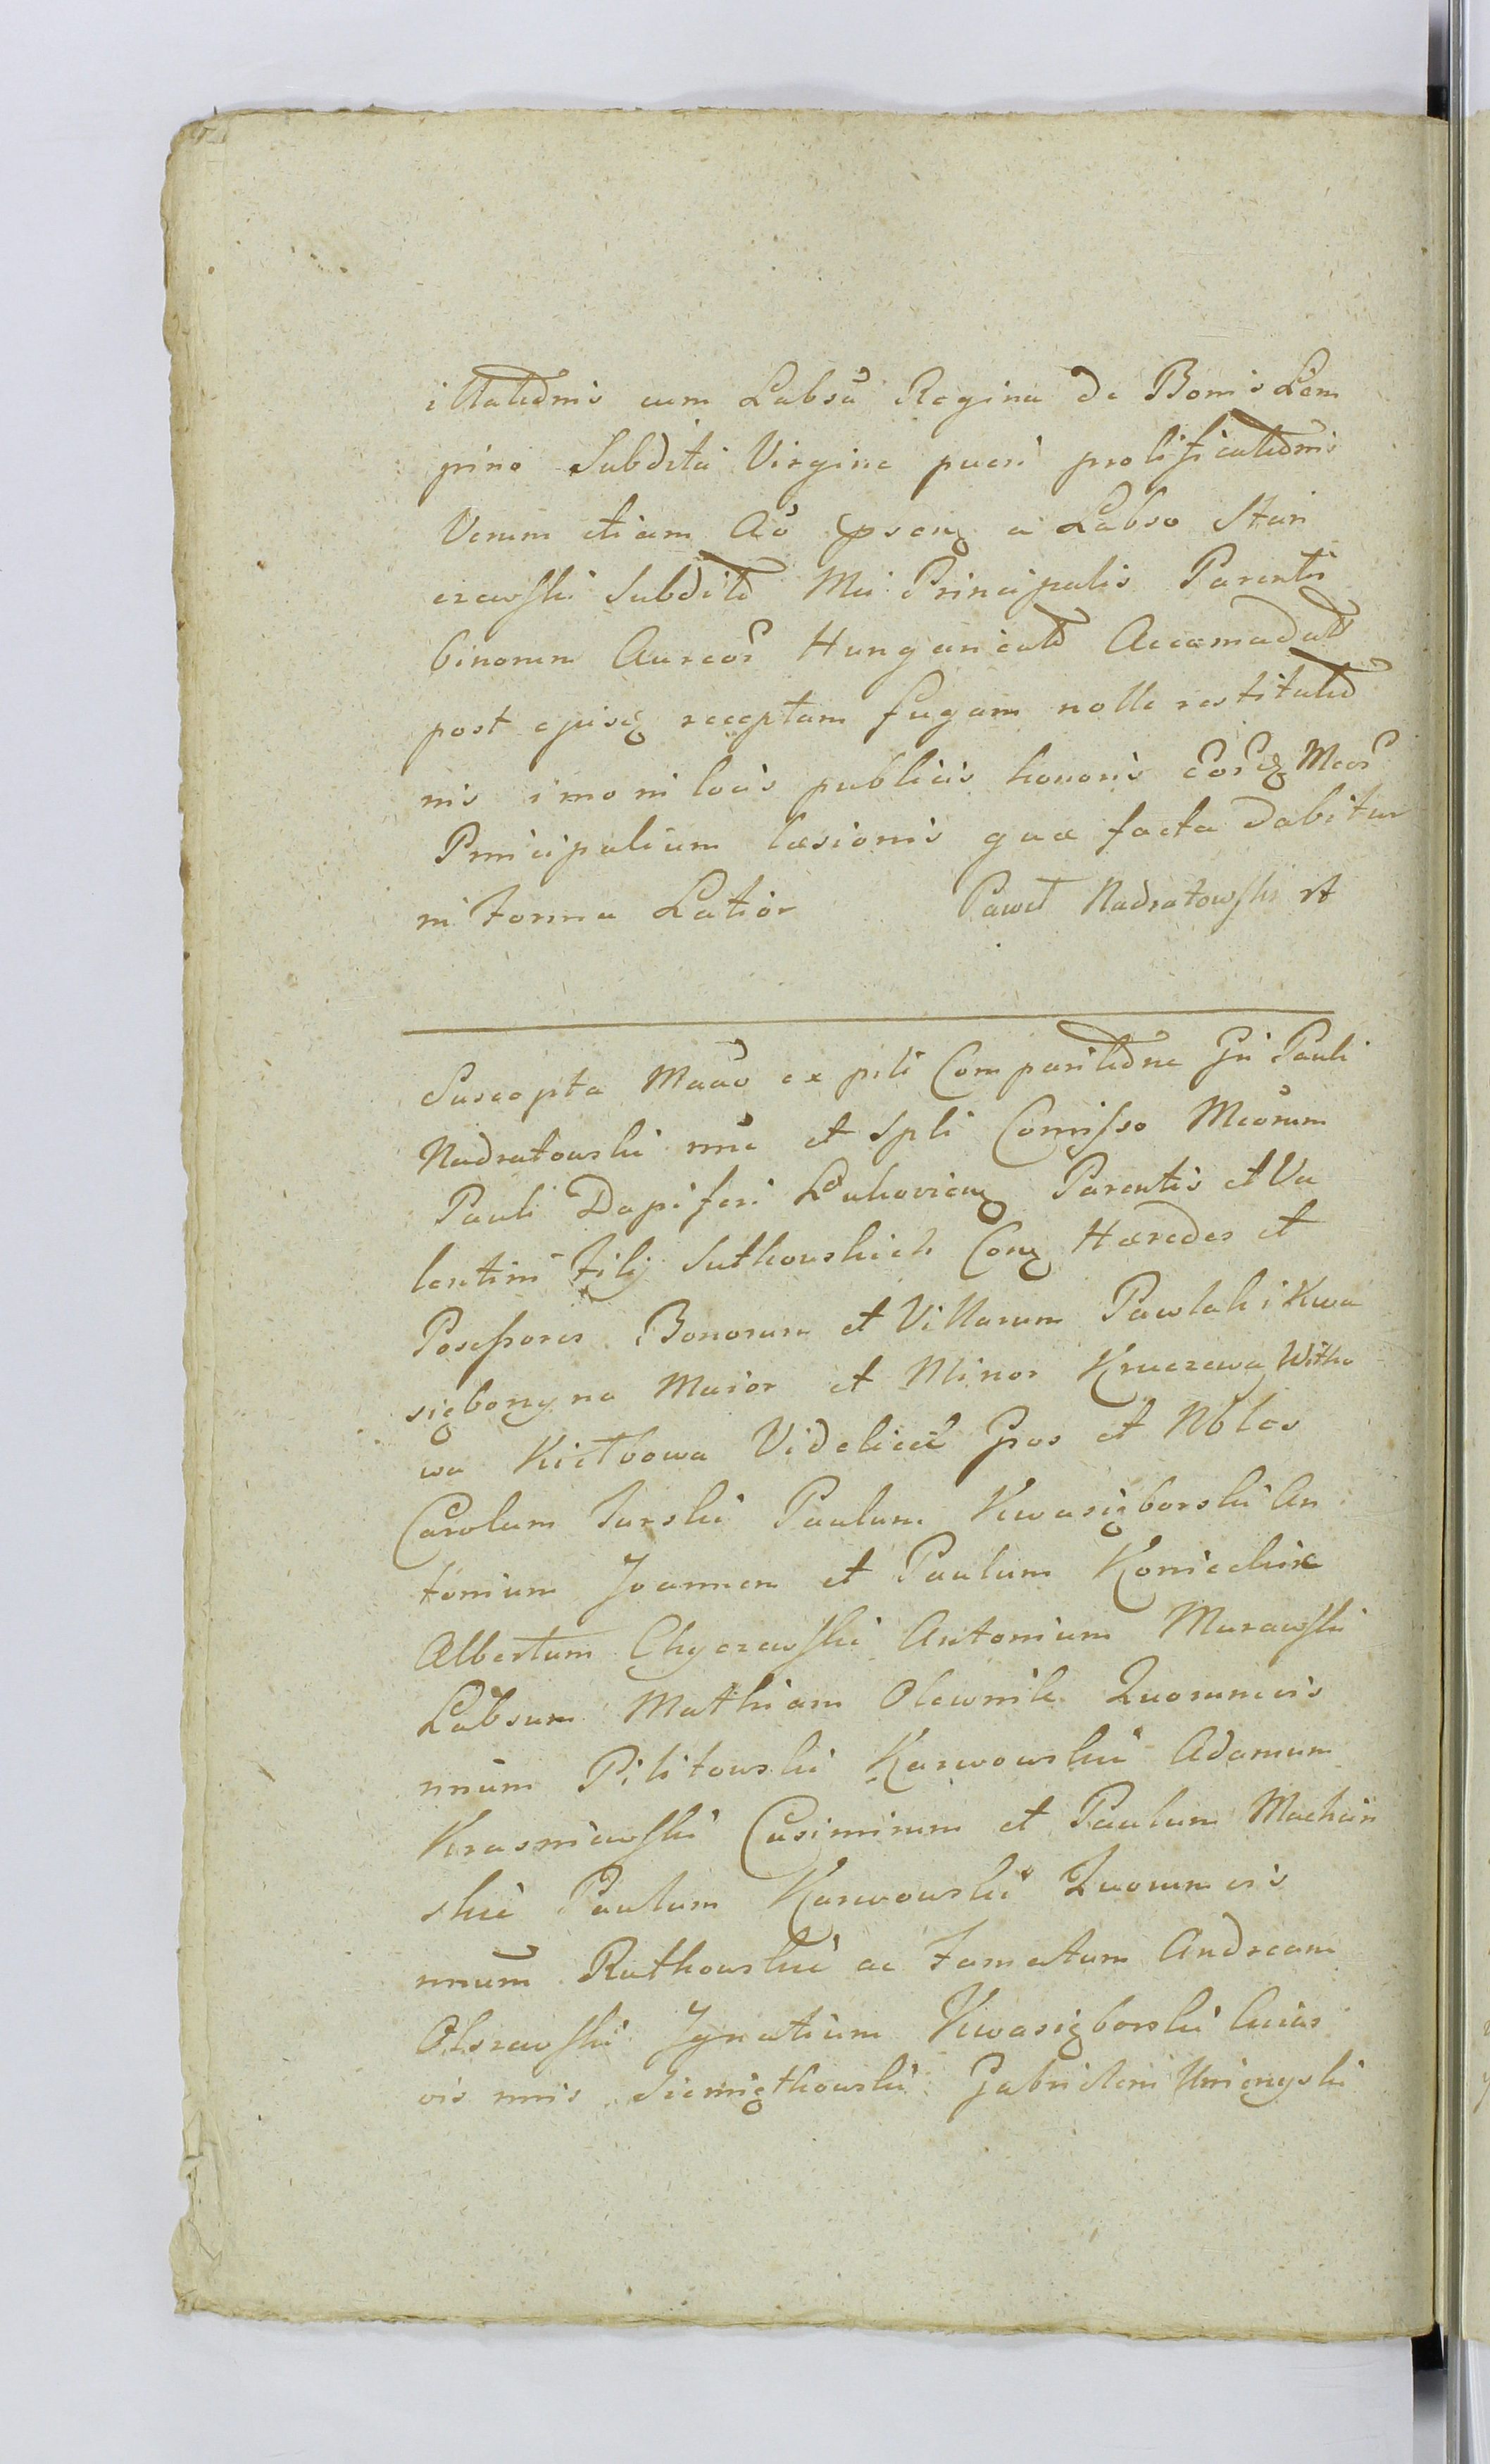 illatiõnis cum Labsã Regina de Bonis Lem
pino Subdita Virgine pueri prolificatiõnis
Verum etiam Aõ psenq a Labso Stan
czewski Subditõ Mei Principalis Parentis
binorum Aureor Hungaricalõ Accomadatõ
post ejusq receptam fugam nolle restitutiõ
nis imo in locis publicis honoris Eorq Meor
Principalium læsionis quæ facta dabitur
in Forma Latior Paweł Nadratowski
Suscepta Maão ex psti Comparitiõne Gn Pauli
Nadratowski mie et Spli Comisso Meõrum
Pauli Dapiferi Lukoviens Parentis et Va
lentini Filij Sutkowskich Conq Hæredes et
Posessores Bonorum et Villarum Pawlaki Kwa
sięboryna Maior et Minor Kruczewa Witko
wa Kiełbowa Videlicet Gnos et Nbles
Carolum Turski Paulum Kwasięborski An
tonium Joannem et Paulum Konieckie
Albertum Chyczewski Antonium Murawski
Labsum Mathiam Olewnik Quorumvis
nnum Pilitowski Karwowskie Adamum
Krasniewski Casimirum et Paulum Machcin
skie Paulum Karwowski Quorumvis
nnum Rutkowskie ac Famatum Andream
Olszewski Ignatium Kwasięborski Cuius
vis nnis Siemiątkowski Gabrielem Unierzyski